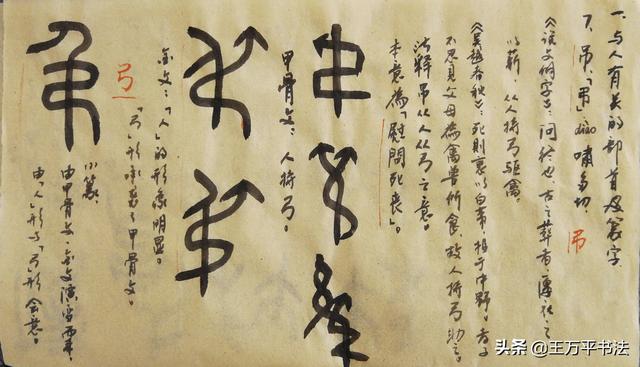 一、与人有关的部首及篆字
7、吊、「弔」diào 啸多切。
吊
《说文·人部》：问终也。古之葬者，厚衣之
以薪，从人持弓驱禽。
《吴越春秋》：死则裹以白茅，投于中野。孝子
不忍见父母为禽兽所食，故人持弓助之。
注释：吊从人从弓之意。
本意为「慰问死丧」。
甲骨文：人持弓。
金文：「人」的形象明显。
「弓」形承袭了甲骨文。
弓
小篆：
由甲骨文、金文演变而来，
由「人」形与「弓」形会意。
头条 @王万平书法